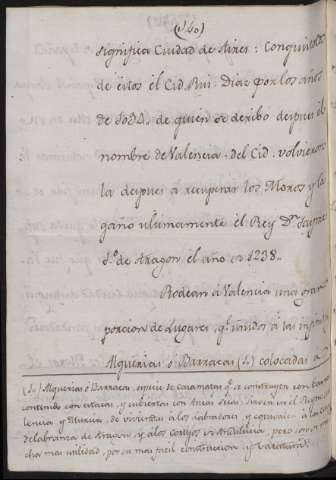 (340)
significa Ciudad de Aires: Conquistola
de estos él Cid Rui-Diaz por los años
de 1094. de quien se deribó despues él
nombre de Valencia del Cid. volvieron
la despues a recuperar los Moros y la
ganó ultimamente él Rey Dn. Jayme
1.º de Aragon él año de 1238..
Rodean á Valencia una gran
porcion de Lugares, que unidos a las
Alquerias ó Barracas (1.) colocadas a
(1.) Alquerias ó Barracas, especie de casas q.e se construyen con
contenido con estacas, y cubiertas con Aneas secas; sirven en el Reyno
lencia, y Murcia, de viviendas á los labradores, y
delabranza de Aragon y álos Cortijos de Andalucia, pero son
cho mas utilidad, por su mas facil construccion y